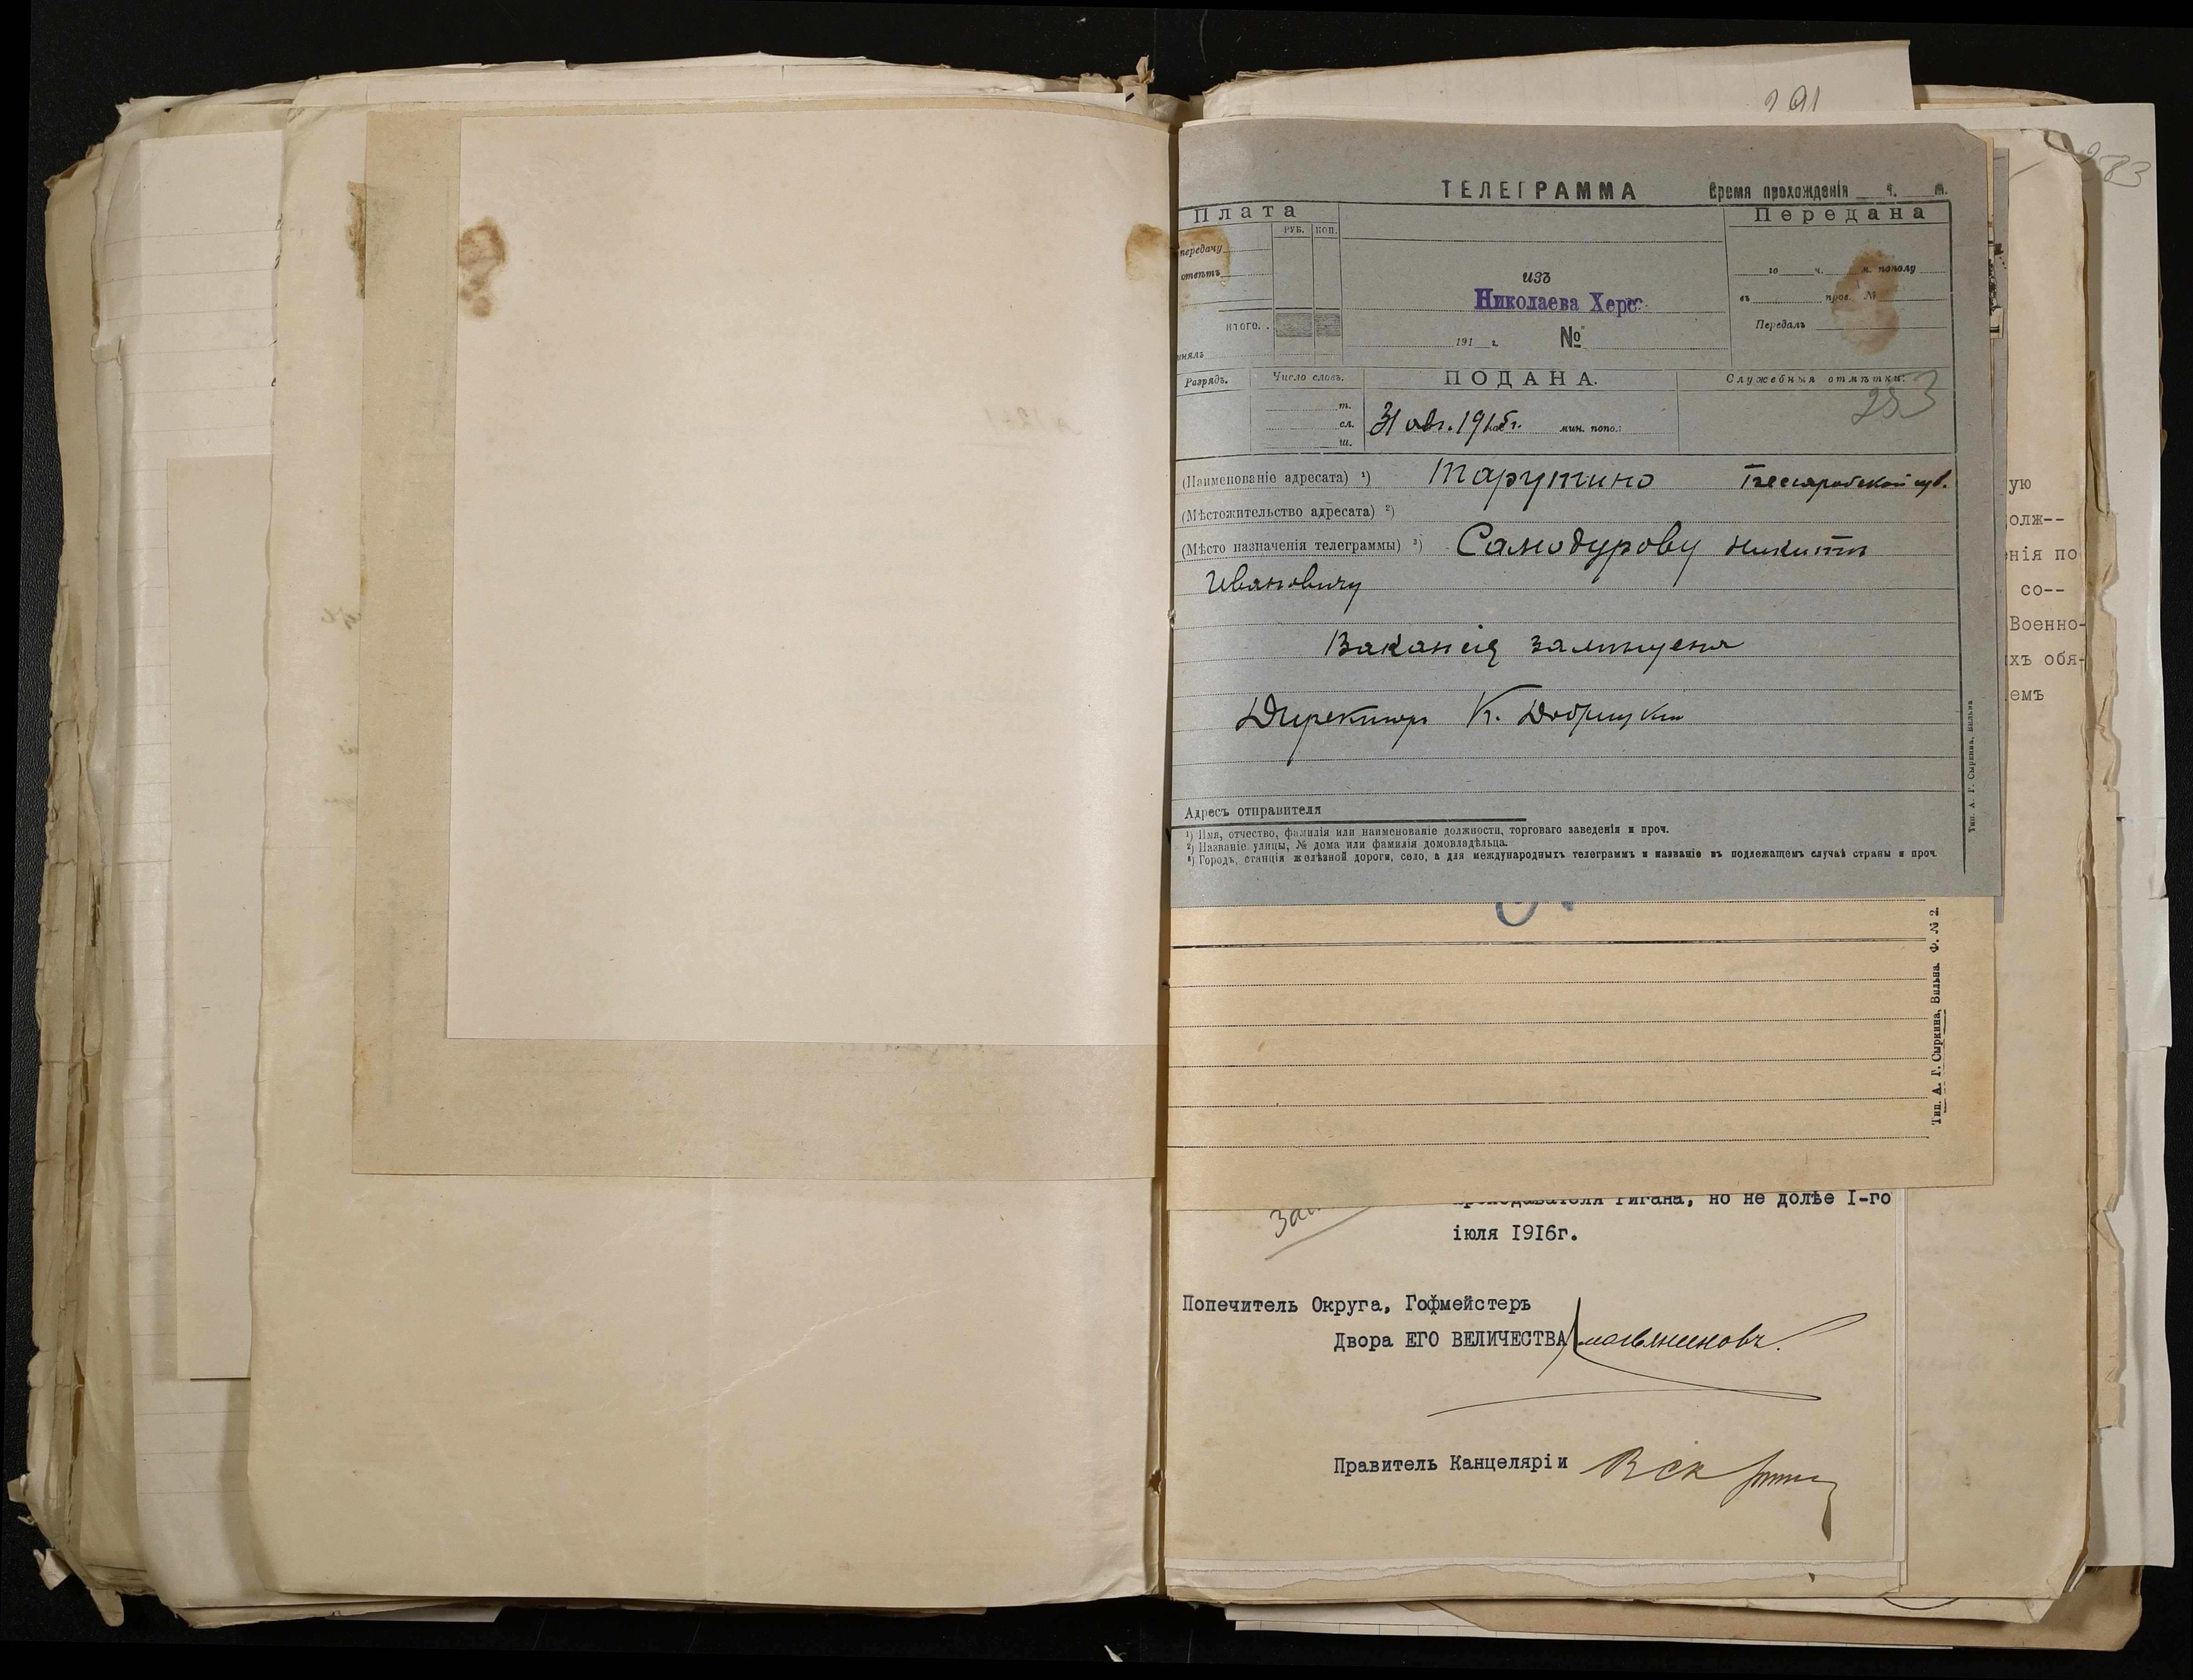 291
283
ТЕЛЕГРАММА
Время прохожденія ч. м.
Плата
РУБ. КОП.
передачу
отвѣтъ
итого.
Николаева Херс.
изъ
191 г. №
Передана
го ч. м. пополу
въ пров. №
Передалъ
Разрядъ.
Число словъ.
т.
сл.
ш.
ПОДАНА.
31 авг. 1915 г. мин. попо.:
Служебныя отмѣтки:
253
(Наименованіе адресата) ¹) Тарутино Бессарабской губ.
(Мѣстожительство адресата) ²)
(Мѣсто назначенія телеграммы) ³) Самодурову Никитѣ
Ивановичу
Вакансія замѣщена
Директоръ К. Добрицкій
Адресъ отправителя
¹) Имя, отчество, фамилія или наименованіе должности, торговаго заведенія и проч.
²) Названіе улицы, № дома или фамилія домовладѣльца.
³) Городъ, станція желѣзной дороги, село, а для международныхъ телеграммъ и названіе въ подлежащемъ случаѣ страны и проч
Тип. А. Г. Сыркина, Вильна
ую
олж--
нія по
со--
Военно-
хъ обя-
емъ
Тип. А. Г. Сыркина, Вильна. Ф. № 2.
преподавателя Гигана, но не долѣе I-го
іюля 1916г.
Попечитель Округа, Гофмейстеръ
Двора ЕГО ВЕЛИЧЕСТВА Смольяниновъ.
Правитель Канцеляріи